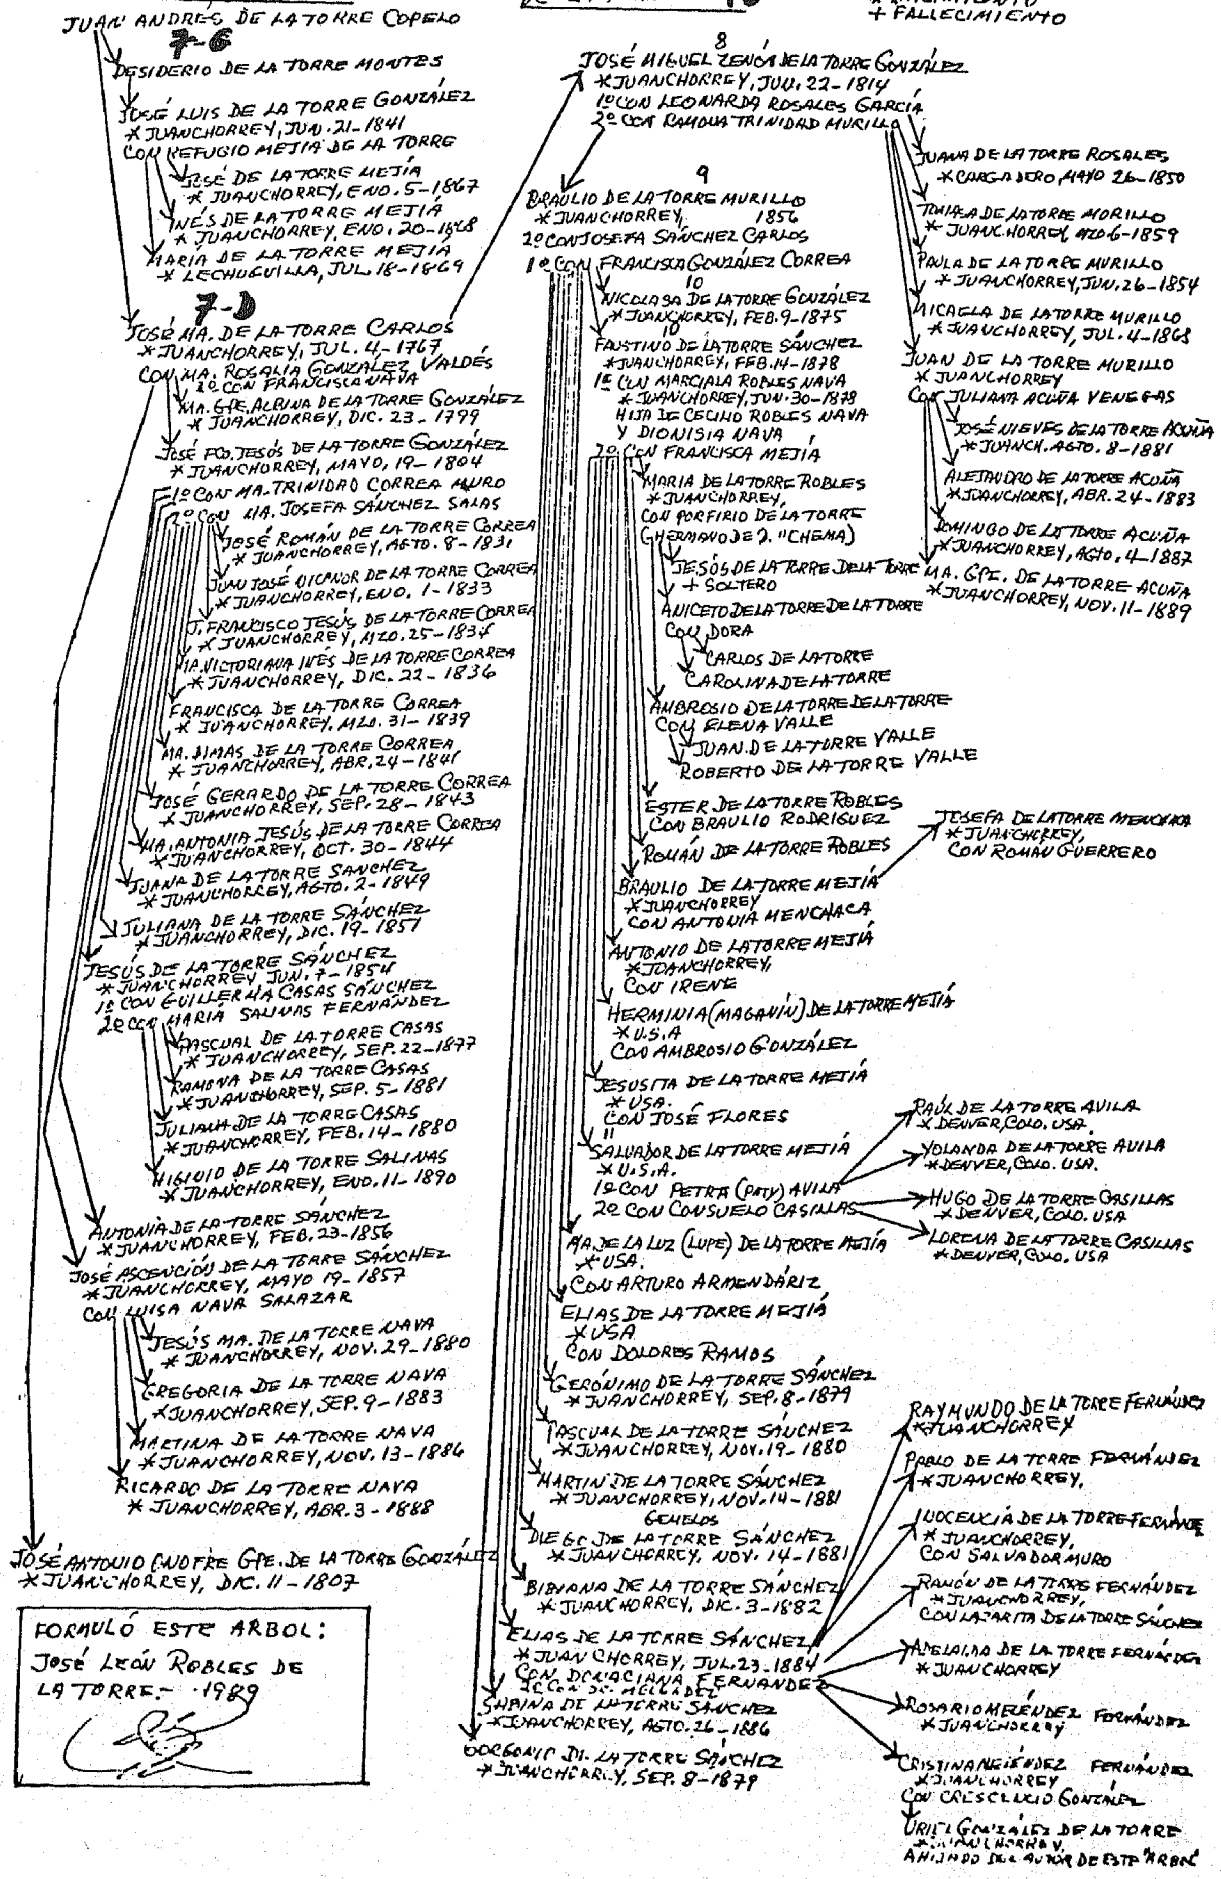 JUAN ANDRÉS DE LA TORRE COPELO
7-C
DESIDERIO DE LA TORRE MONTES
JOSÉ LUIS DE LA TORRE GONZÁLEZ
* JUANCHORREY, JUN. 21-1841
CON REFUGIO MEJIA DE LA TORRE
JOSÉ DE LA TORRE MEJÍA
* JUANCHORREY, ENO. 5-1867
INÉS DE LA TORRE MEJÍA
* JUANCHORREY, ENO. 20-1868
MARÍA DE LA TORRE MEJIÁ
* LECHUGUILLA, JUL. 18-1869
7-D
JOSÉ MA. DE LA TORRE CARLOS
* JUANCHORREY, JUL. 4-1767
CON MA. ROSALIA GONZALEZ VALDÉS
2º CON FRANCISCA NAVA
MA. GPE. ALBINA DE LA TORRE GONZÁLEZ
* JUANCHORREY, DIC. 23-1799
JOSÉ FCO. JESÚS DE LA TORRE GONZÁLEZ
* JUANCHORREY, MAYO, 19-1804
1º CON MA. TRINIDAD CORREA MURO
2º CON MA. JOSEFA SÁNCHEZ SALAS
JOSÉ ROMÁN DE LA TORRE CORREA
* JUANCHORREY, AGTO. 8-1831
JUAN JOSÉ NICANOR DE LA TORRE CORREA
* JUANCHORREY, ENO. 1-1833
J. FRANCISCO JESÚS DE LA TORRE CORREA
* JUANCHORREY, MZO. 25-1834
MA. VICTORIANA INÉS DE LA TORRE CORREA
* JUANCHORREY, DIC. 22-1836
FRANCISCA DE LA TORRE CORREA
* JUANCHORREY, MZO. 31-1839
MA. DIMAS DE LA TORRE CORREA
* JUANCHORREY, ABR. 24-1841
JOSÉ GERARDO DE LA TORRE CORREA
* JUANCHORREY, SEP. 28-1843
MA. ANTONIA JESÚS DE LA TORRE CORREA
* JUANCHORREY, OCT. 30-1844
JUANA DE LA TORRE SANCHEZ
* JUANCHORREY, AGTO. 2-1849
JULIANA DE LA TORRE SÁNCHEZ
* JUANCHORREY, DIC. 19-1851
JESÚS DE LA TORRE SÁNCHEZ
* JUANCHORREY JUN. 7-1854
1º CON GUILLERMA CASAS SÁNCHEZ
2º CON MARIA SALINAS FERNÁNDEZ
PASCUAL DE LA TORRE CASAS
* JUANCHORREY, SEP. 22-1877
RAMONA DE LA TORRE CASAS
* JUANCHORREY, SEP. 5-1881
JULIANA DE LA TORRE CASAS
* JUANCHORREY, FEB. 14-1880
HIGINIO DE LA TORRE SALINAS
* JUANCHORREY, ENO. 11-1890
ANTONIA DE LA TORRE SÁNCHEZ
* JUANCHORREY, FEB. 23-1856
JOSÉ ASCENCIÓN DE LA TORRE SÁNCHEZ
* JUANCHORREY, MAYO 19-1857
CON LUISA NAVA SALAZAR
JESÚS MA. DE LA TORRE NAVA
* JUANCHORREY, NOV. 29-1880
GREGORIA DE LA TORRE NAVA
* JUANCHORREY, SEP. 9-1883
MARTINA DE LA TORRE NAVA
* JUANCHORREY, NOV. 13-1886
RICARDO DE LA TORRE NAVA
* JUANCHORREY, ABR. 3-1888
JOSÉ ANTONIO ONOFRE GPE. DE LA TORRE GONZÁLEZ
* JUANCHORREY, DIC. 11-1807
FORMULÓ ESTE ARBOL:
JOSÉ LEÓN ROBLES DE
LA TORRE.- 1989
8
JOSÉ MIGUEL ZENÓN DE LA TORRE GONZÁLEZ
* JUANCHORREY, JUN. 22-1814
1º CON LEONARDA ROSALES GARCÍA
2º CON RAMONA TRINIDAD MURILLO
9
BRAULIO DE LA TORRE MURILLO
* JUANCHORREY, 1856
2º CON JOSEFA SÁNCHEZ CARLOS
1º CON FRANCISCA GONZÁLEZ CORREA
10
NICOLASA DE LA TORRE GONZÁLEZ
* JUANCHORREY, FEB. 9-1875
10
FAUSTINO DE LA TORRE SÁNCHEZ
* JUANCHORREY, FEB. 14-1878
1º CON MARCIALA ROBLES NAVA
* JUANCHORREY, JUN. 30-1878
HIJA DE CECILIO ROBLES NAVA
Y DIONISIA NAVA
2º CON FRANCISCA MEJÍA
MARIA DE LA TORRE ROBLES
* JUANCHORREY,
CON PORFIRIO DE LA TORRE
(HERMANO DE J. "CHEMA)
JESÚS DE LA TORRE DE LA TORRE
+ SOLTERO
ANICETO DE LA TORRE DE LA TORRE
CON DORA
CARLOS DE LA TORRE
CAROLINA DE LA TORRE
AMBROSIO DE LA TORRE DE LA TORRE
CON ELENA VALLE
JUAN DE LA TORRE VALLE
ROBERTO DE LA TORRE VALLE
ESTER DE LA TORRE ROBLES
CON BRAULIO RODRIGUEZ
ROMÁN DE LA TORRE ROBLES
BRAULIO DE LA TORRE MEJIÁ
* JUANCHORREY
CON ANTONIA MENCHACA
ANTONIO DE LA TORRE MEJIÁ
* JUANCHORREY,
CON IRENE
HERMINIA (MAGANÍN) DE LA TORRE MEJIÁ
* U.S.A
CON AMBROSIO GONZÁLEZ
JESUSITA DE LA TORRE MEJIÁ
* USA.
CON JOSÉ FLORES
11
SALVADOR DE LA TORRE MEJIÁ
* U.S.A.
1º CON PETRA (PATY) AVILA
2º CON CONSUELO CASILLAS
MA. DE LA LUZ (LUPE) DE LA TORRE MEJÍA
* USA.
CON ARTURO ARMENDÁRIZ
ELIAS DE LA TORRE MEJIÁ
* USA
CON DOLORES RAMOS
GERÓNIMO DE LA TORRE SÁNCHEZ
* JUANCHORREY, SEP. 8-1879
PASCUAL DE LA TORRE SÁNCHEZ
* JUANCHORREY, NOV. 19-1880
MARTIN DE LA TORRE SÁNCHEZ
* JUANCHORREY, NOV. 14-1881
GEMELOS
DIEGO DE LA TORRE SÁNCHEZ
* JUANCHORREY, NOV. 14-1881
BIBIANA DE LA TORRE SÁNCHEZ
* JUANCHORREY, DIC. 3-1882
ELIAS DE LA TORRE SÁNCHEZ
* JUANCHORREY, JUL. 23-1884
CON DONACIANA FERNANDEZ
SABINA DE LA TORRE SÁNCHEZ
* JUANCHORREY, AGTO. 26-1886
GORGONIO DE LA TORRE SÁNCHEZ
* JUANCHORREY, SEP. 8-1879
+ FALLECIMIENTO
JUANA DE LA TORRE ROSALES
* CARGADERO, MAYO 26-1850
TOMASA DE LA TORRE MURILLO
* JUANCHORREY, MZO 6-1859
PAULA DE LA TORRE MURILLO
* JUANCHORREY, JUN. 26-1854
MICAELA DE LA TORRE MURILLO
* JUANCHORREY, JUL. 4-1868
JUAN DE LA TORRE MURILLO
* JUANCHORREY
CON JULIANA ACUÑA VENEGAS
JOSÉ NIEVES DE LA TORRE ACUÑA
* JUANCH. AGTO. 8-1881
ALEJANDRO DE LA TORRE ACUÑA
* JUANCHORREY, ABR. 24-1883
DOMINGO DE LA TORRE ACUÑA
* JUANCHORREY, AGTO. 4-1887
MA. GPE. DE LA TORRE ACUÑA
* JUANCHORREY, NOV. 11-1889
JOSEFA DE LA TORRE MENCHACA
* JUANCHORREY,
CON ROMÁN GUERRERO
RAÚL DE LA TORRE AVILA
* DENVER, COLO. USA.
YOLANDA DE LA TORRE AVILA
* DENVER, COLO. USA.
HUGO DE LA TORRE CASILLAS
* DENVER, COLO. USA
LORENA DE LA TORRE CASILLAS
* DENVER, COLO. USA
RAYMUNDO DE LA TORRE FERNÁNDEZ
* JUANCHORREY
PABLO DE LA TORRE FERNÁNDEZ
* JUANCHORREY,
INOCENCIA DE LA TORRE FERNÁNDE
* JUANCHORREY,
CON SALVADOR MURO
RAMÓN DE LA TORRE FERNÁNDEZ
* JUANCHORREY,
CON LAZARITA DE LA TORRE SÁNCHEZ
ADELAIDA DE LA TORRE FERNÁNDEZ
* JUANCHORREY
ROSARIO MELÉNDEZ FERNÁNDEZ
* JUANCHORREY
CRISTINA MELÉNDEZ FERNÁNDEZ
* JUANCHORREY
CON CRESCENCIO GONZÁLEZ
URIEL GONZÁLEZ DE LA TORRE
* JUANCHORREY,
AHIJADO DEL AUTOR DE ESTE "ARBOL"